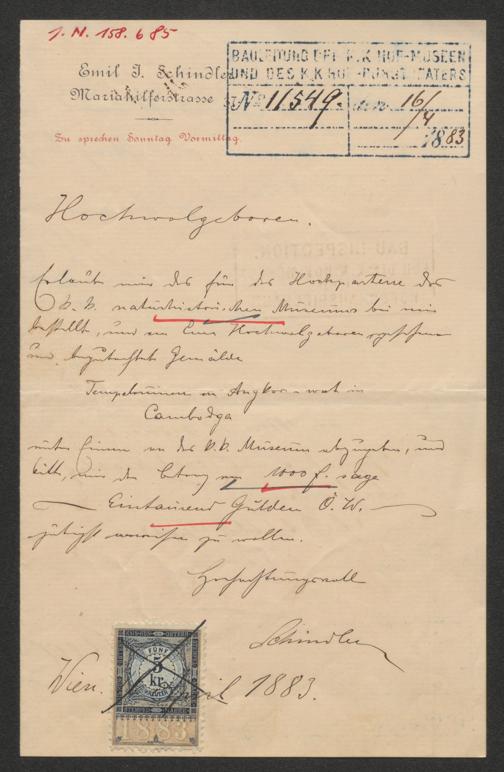 J. N. 158.685
BAULEITUNG DER K.K. HOF-MUSEEN
UND DES K.K. HOF-BURGTHEATERS
No 11549. 16/4
1883
Emil J. Schindler
Mariahilferstrasse
Zu sprechen Sonntag Vormittag.
Hochwolgeboren.
Erlaube mir das für das Hochparterre des
k. k. naturhistorischen Museums bei mir
bestellt, und von Euer Hochwolgeboren gesehene
und begutachtete Gemälde
Tempelruinen von Angkor-wat in
Cambodga
unter Einem an das k. k. Museum abzugeben, und
bitte, mir den Betrag von 1000 f. sage
Eintausend Gulden Ö. W.
gütigst anweisen zu wollen.
Hochachtungsvoll
Schindler
Wien. April 1883.
FÜNF
5
kr.
1883